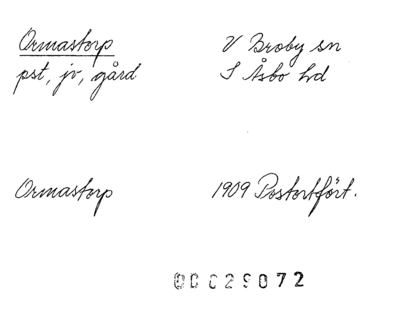 Ormastorp V Broby sn
pst, jv, gård S Åsbo hd
Ormastorp 1909 Postortfört.
00029072